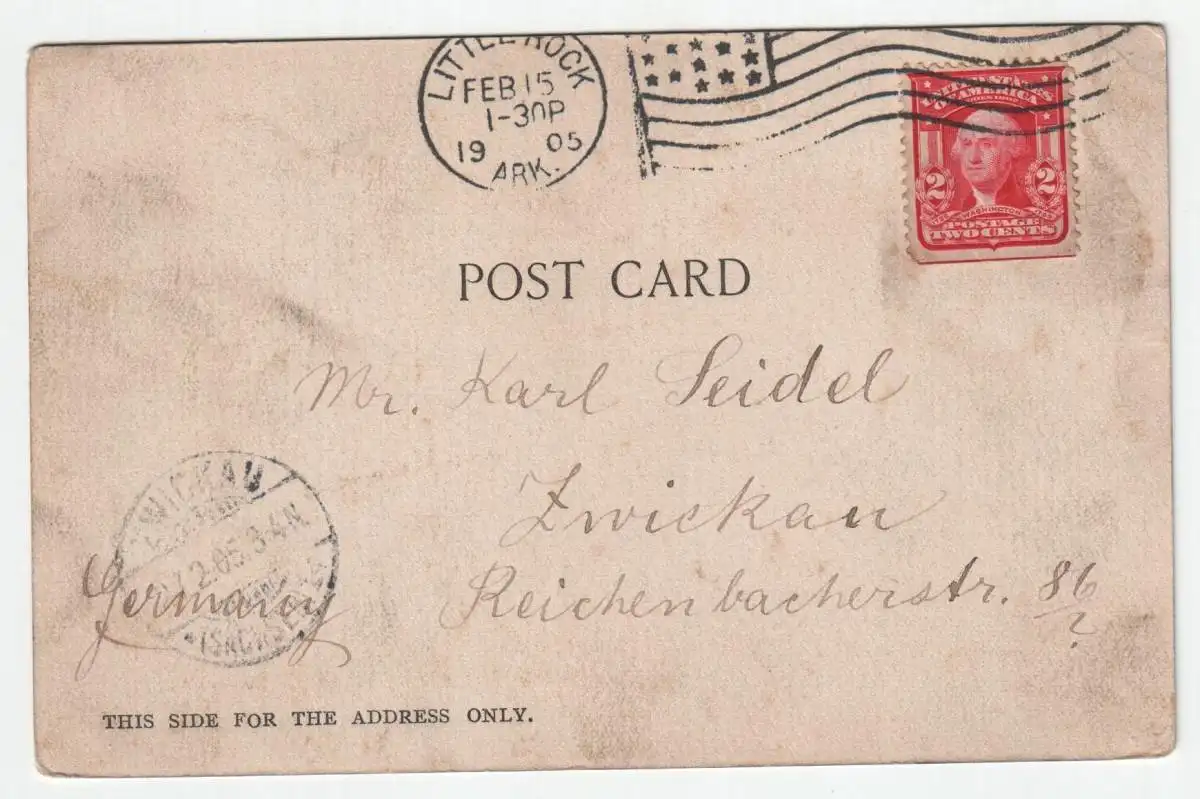 LITTLE ROCK
FEB 15
1-30P
19 05
ARK.
UNITED STATES
OF AMERICA
2 2
WASHINGTON
POSTAGE
TWO CENTS
POST CARD
Mr. Karl Seidel
Zwickau
Reichenbacherstr. 86
?
Germany
ZWICKAU
2.05.3-4N
THIS SIDE FOR THE ADDRESS ONLY.